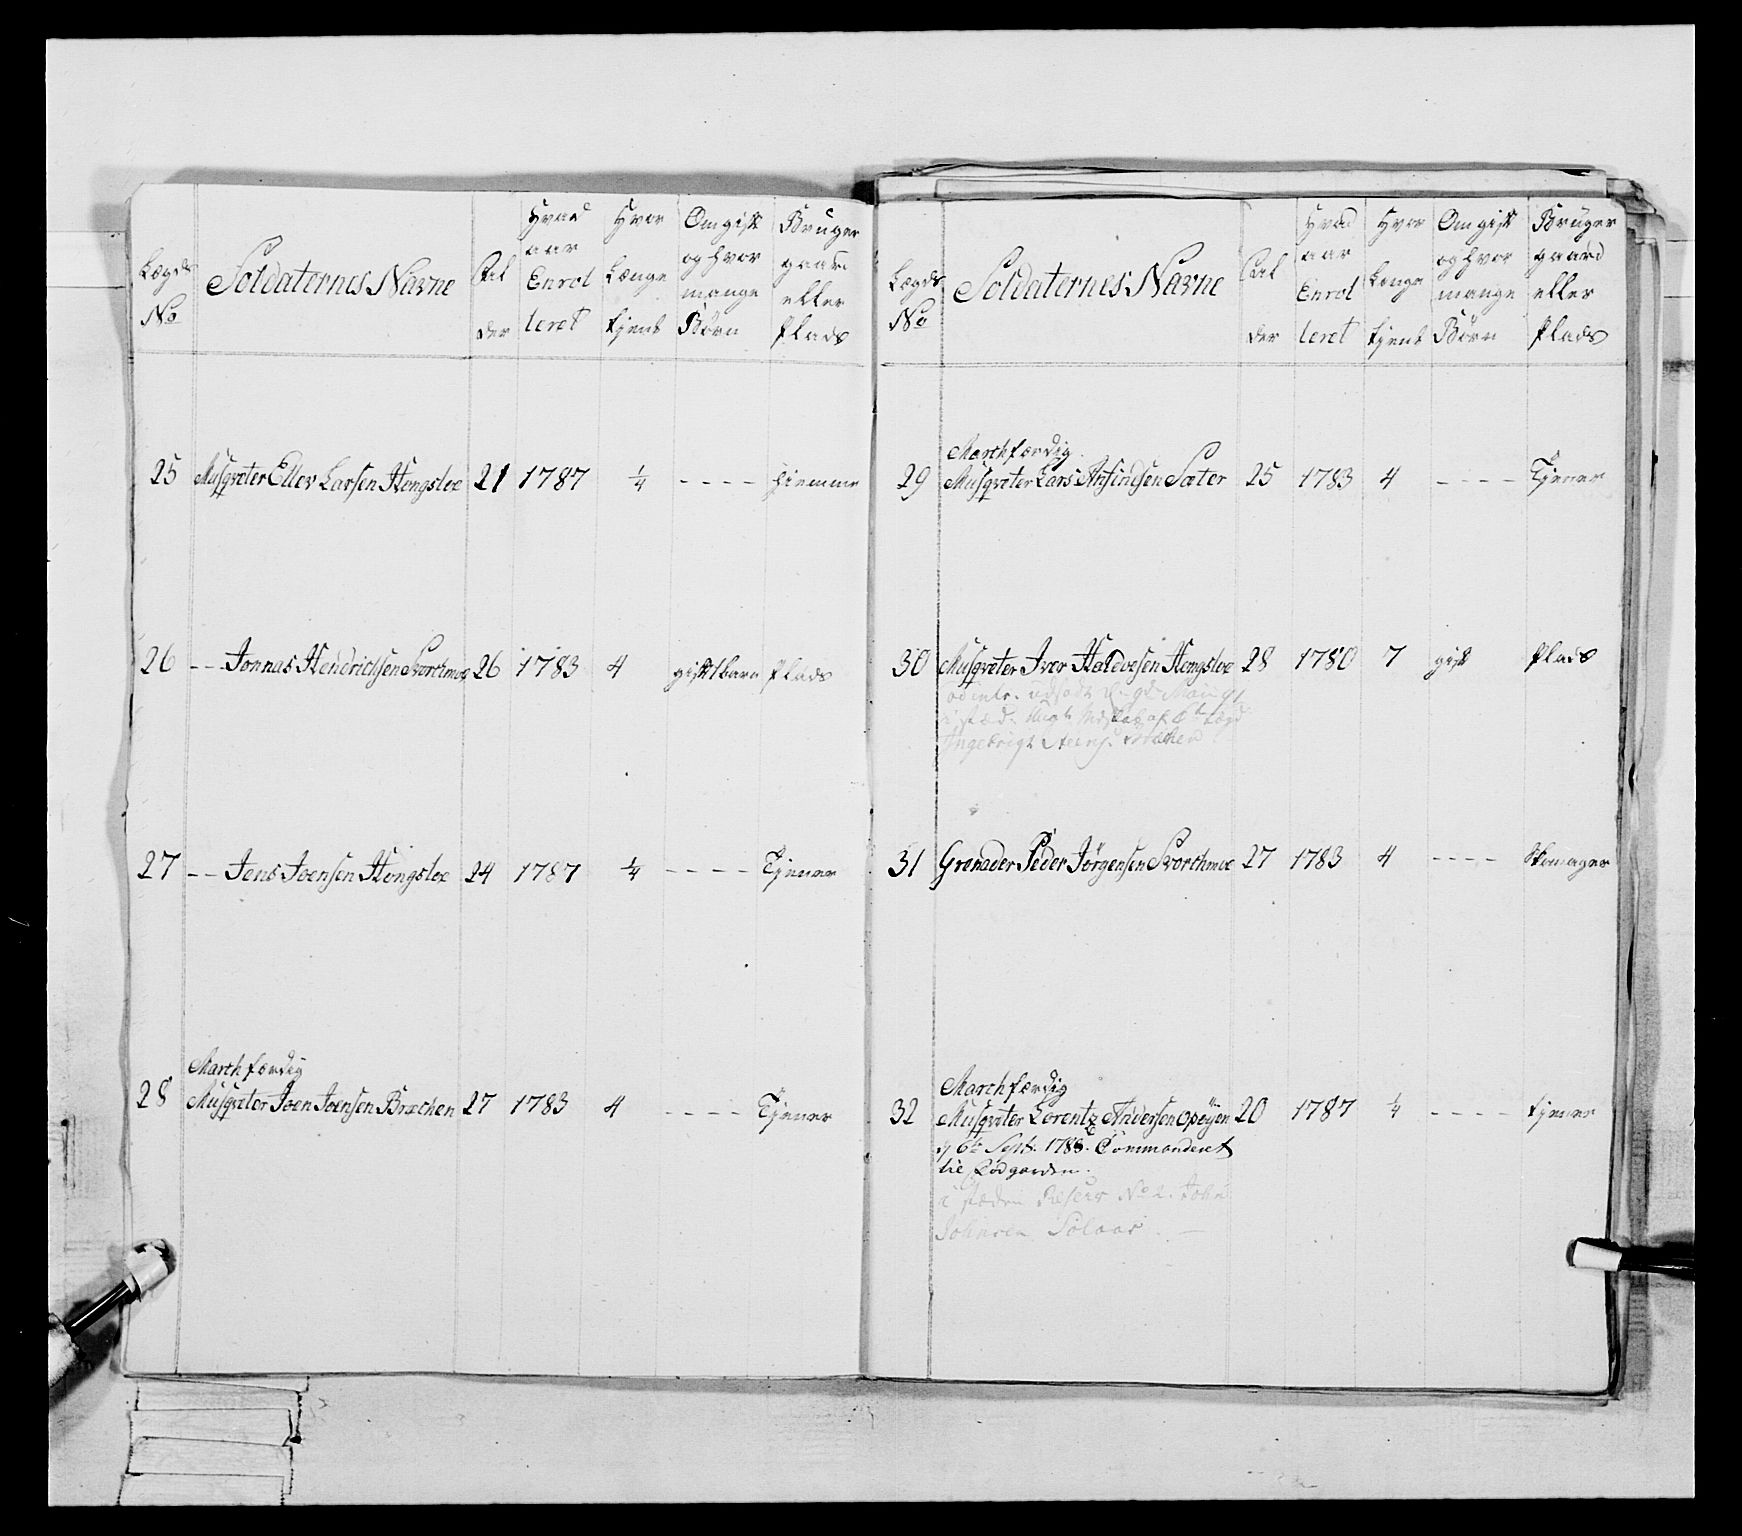 Lægds No | Soldaternes Navne | Alder | Hvad aar Enrolleret | Hvor Længe tjent | Om gift og hvor mange Børn | Bruger gaard eller Plads
25 Musqveter Ellev Larsen Hongsloe 21 1787 ¼ - - - - hiemme
26 - - Jonnas Hendrichsen Svorthmoe 26 1783 4 gift 1 barn Plads
27 - - Jens Joensen Hongsloe 24 1787 ¼ - - - - Tjener
Marchfærdig
28 Musqveter Joen Joensen Bræchen 27 1783 4 - - - - Tjener
Lægds No | Soldaternes Navne | Alder | Hvad aar Enrolleret | Hvor Længe tjent | Om gift og hvor mange Børn | Bruger gaard eller Plads
Marchfærdig
29 Musqveter Lars Arsindsen Sæter 25 1783 4 - - - - Tjener
30 Musqveter Iver Haldvesen Hongsloe 28 1780 7 gift Plads
udsadt
i stæd
Ingebrigt
31 Grenader Peder Jörgensen Svorthmoe 27 1783 4 - - - - Skomager
Marchfærdig
32 Musqveter Lorentz Andersen Opöyen 20 1787 ¼ - - - - tjener
6te Sept. 1788. Commanderet
til Lidgarden.
i stæden Reserv No 2. John
Johnsen Solaar. —